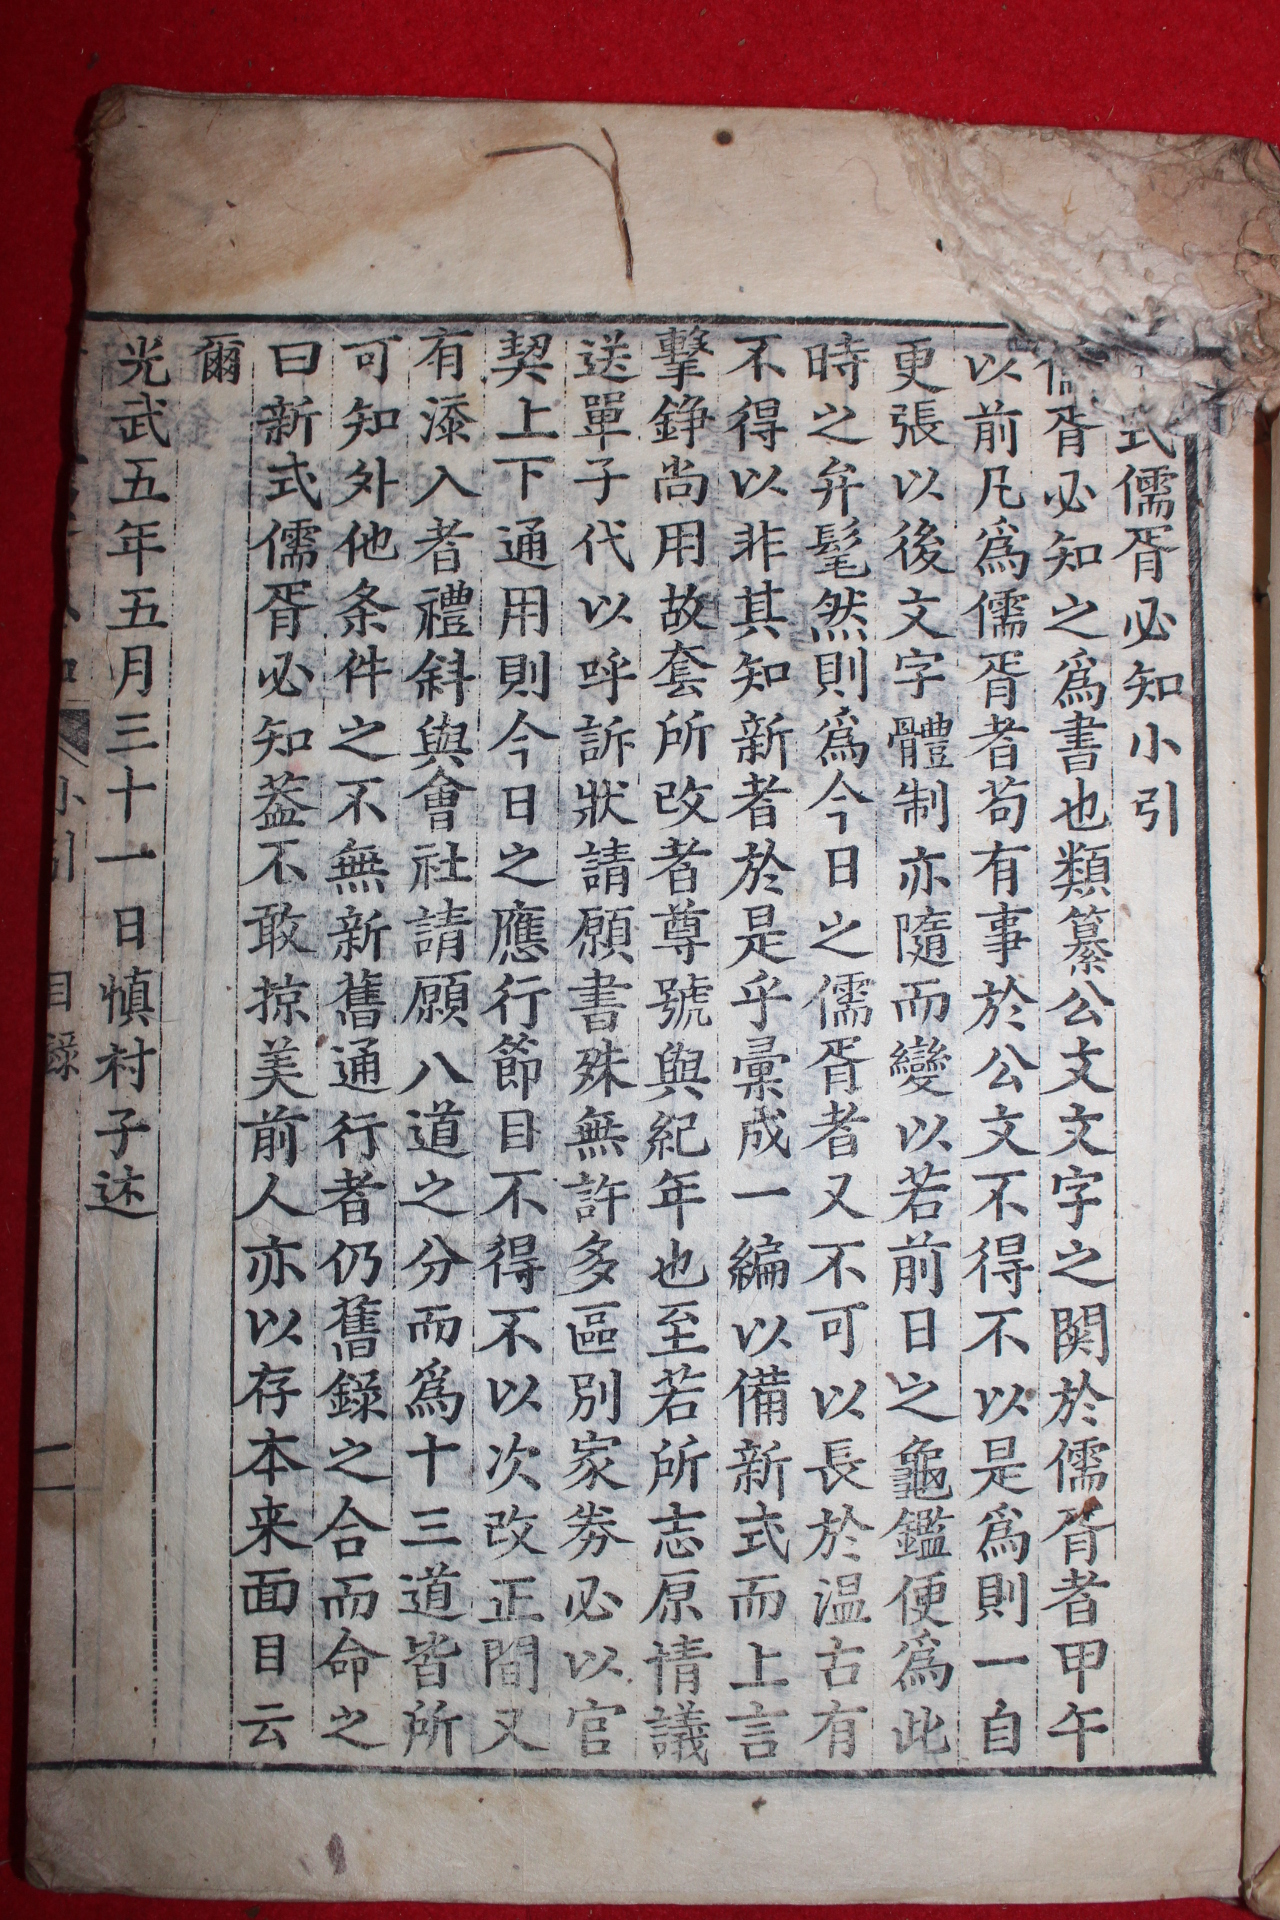 式儒胥必知小引
儒胥必知之爲書也類纂公文文字之関於儒胥者甲午
以前凡爲儒胥者苟有事於公文不得不以是爲則一自
更張以後文字體制亦隨而變以若前日之龜鑑便爲此
時之弁髦然則爲今日之儒胥者又不可以長於温古有
不得以非其知新者於是乎彙成一編以備新式而上言
擊錚尚用故套所改者尊號與紀年也至若所志原情議
送單子代以呼訴狀請願書殊無許多區別家券必以官
契上下通用則今日之應行節目不得不以次改正間又
有添入者禮斜與會社請願八道之分而爲十三道皆所
可知外他条件之不無新舊通行者仍舊錄之合而命之
曰新式儒胥必知葢不敢掠美前人亦以存本来面目云
爾
光武五年五月三十一日慎村子述
小引
目錄
一